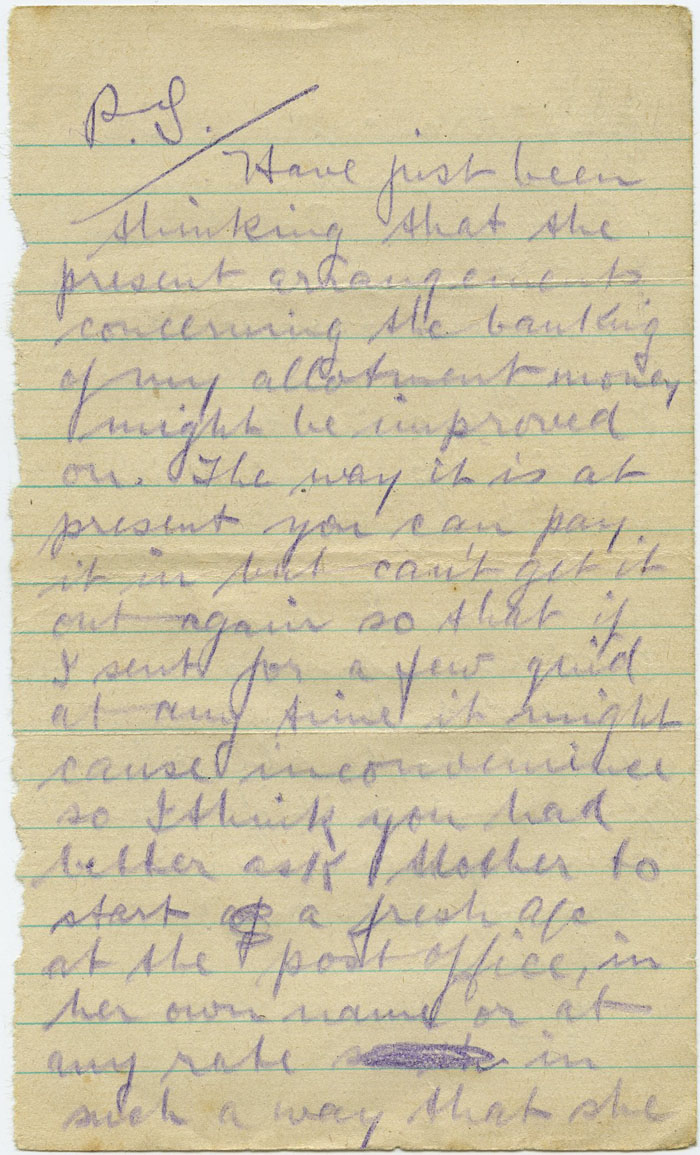 P.S.
Have just been
thinking that the
present arrangements
concerning the banking
of my allotment money
might be improved
on. The way it is at
present you can pay
it in but can't get it
out again so that if
I sent for a few quid
at any time it might
cause inconvenience
so I think you had
better ask Mother to
start a fresh a/c
at the post office, in
her own name or at
any rate in
such a way that she